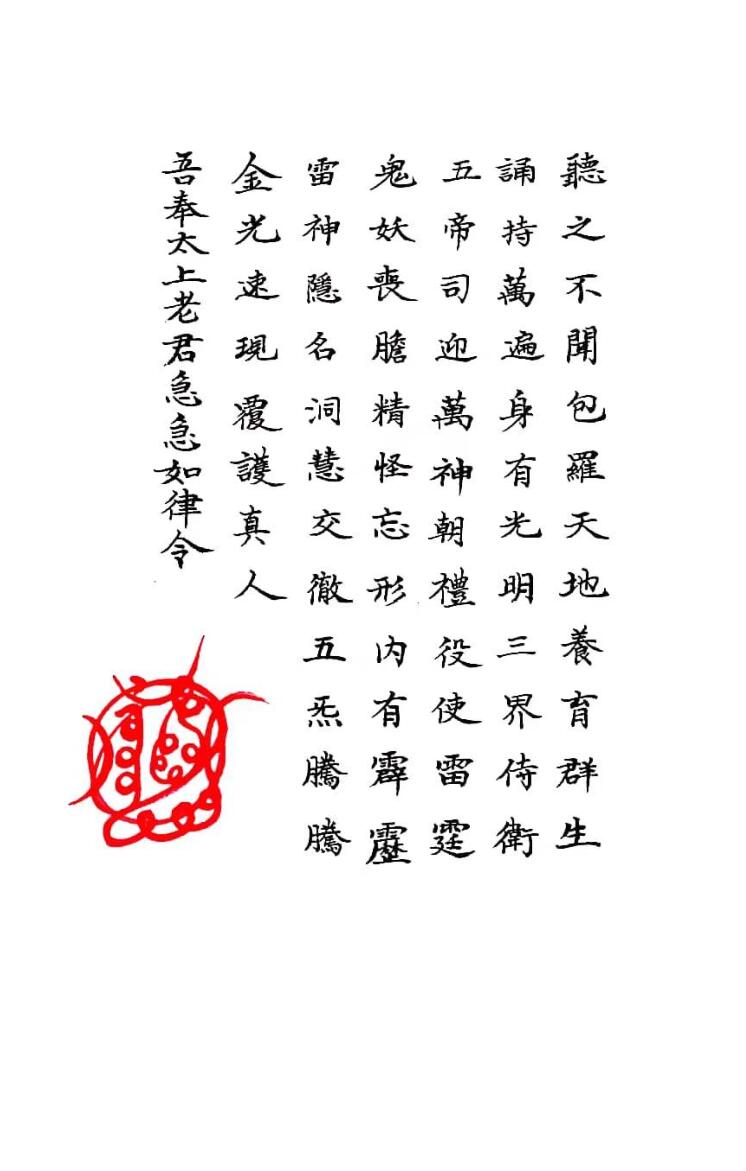 聽之不聞包羅天地養育群生
誦持萬遍身有光明三界侍衛
五帝司迎萬神朝禮役使雷霆
鬼妖喪膽精怪忘形內有霹靂
雷神隱名洞慧交徹五炁騰騰
金光速現覆護真人
吾奉太上老君急急如律令